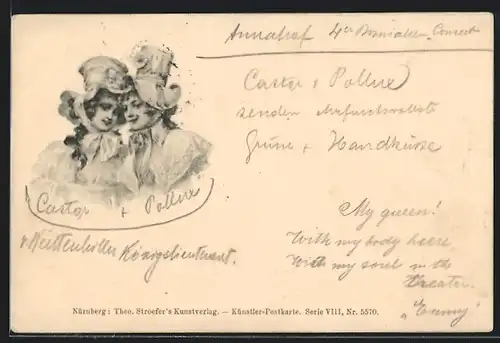 Annahof 4er Bosniaken Concert
Castor & Pollux
senden ehrfurchtsvollste
Grüße + Handküsse
Castor + Pollux
Königslieutenant.
My queen!
With my body heere,
With my soul in the
theater.
"Emmy"
Nürnberg: Theo. Stroefer's Kunstverlag. — Künstler-Postkarte. Serie VIII, Nr. 5570.